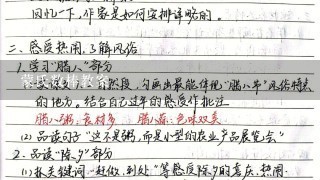 回忆一下，作家是如何安排详略的。
二、感受热闹，了解风俗
1. 学习“腊八”部分
蒙氏数棒教案
自然段，勾画出最能体现“腊八节”风俗特点
的地方。结合自己过年的感受作批注
腊八粥：食材多 腊八蒜：色味双美
(2) 品读句子“这不是粥，而是小型的农业产品展览会”
2. 品读“除夕”部分
(1) 抓关键词，“赶做，到处”等感受除夕的喜庆、热闹